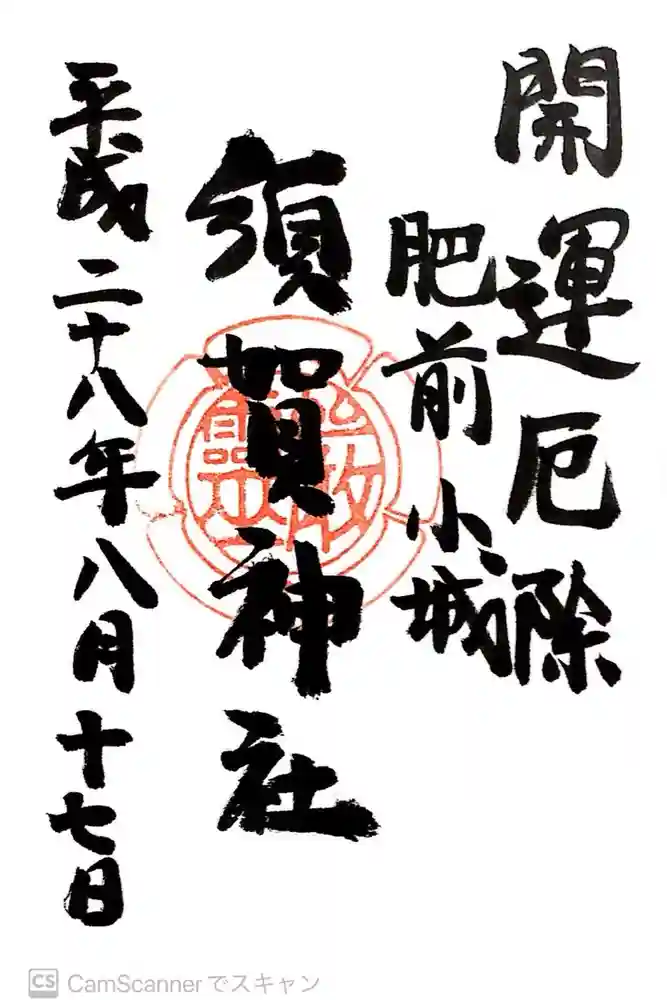 開運厄除
肥前小城
須賀神社
平成二十八年八月十七日
CS CamScannerでスキャン